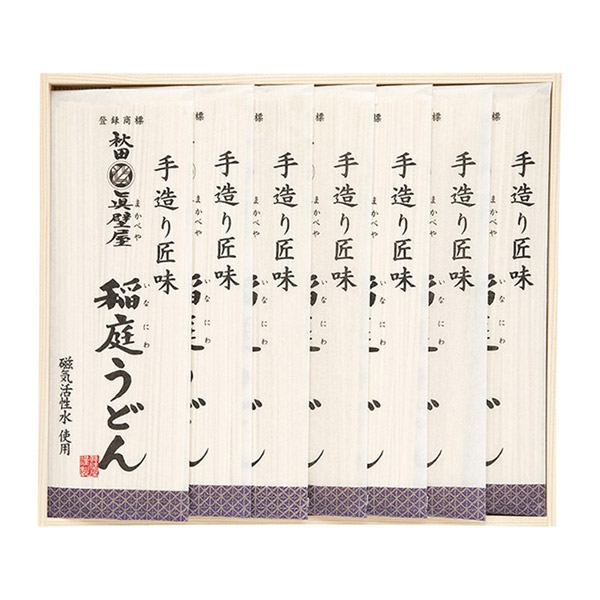 登録商標
秋田
眞壁屋
まかべや
手造り匠味
稲庭うどん
いなにわ
磁気活性水 使用
標
手造り匠味
まかべや
いなにわ
標
手造り匠味
まかべや
いなにわ
標
手造り匠味
まかべや
いなにわ
標
手造り匠味
まかべや
いなにわ
標
手造り匠味
まかべや
いなにわ
標
手造り匠味
まかべや
いなにわ